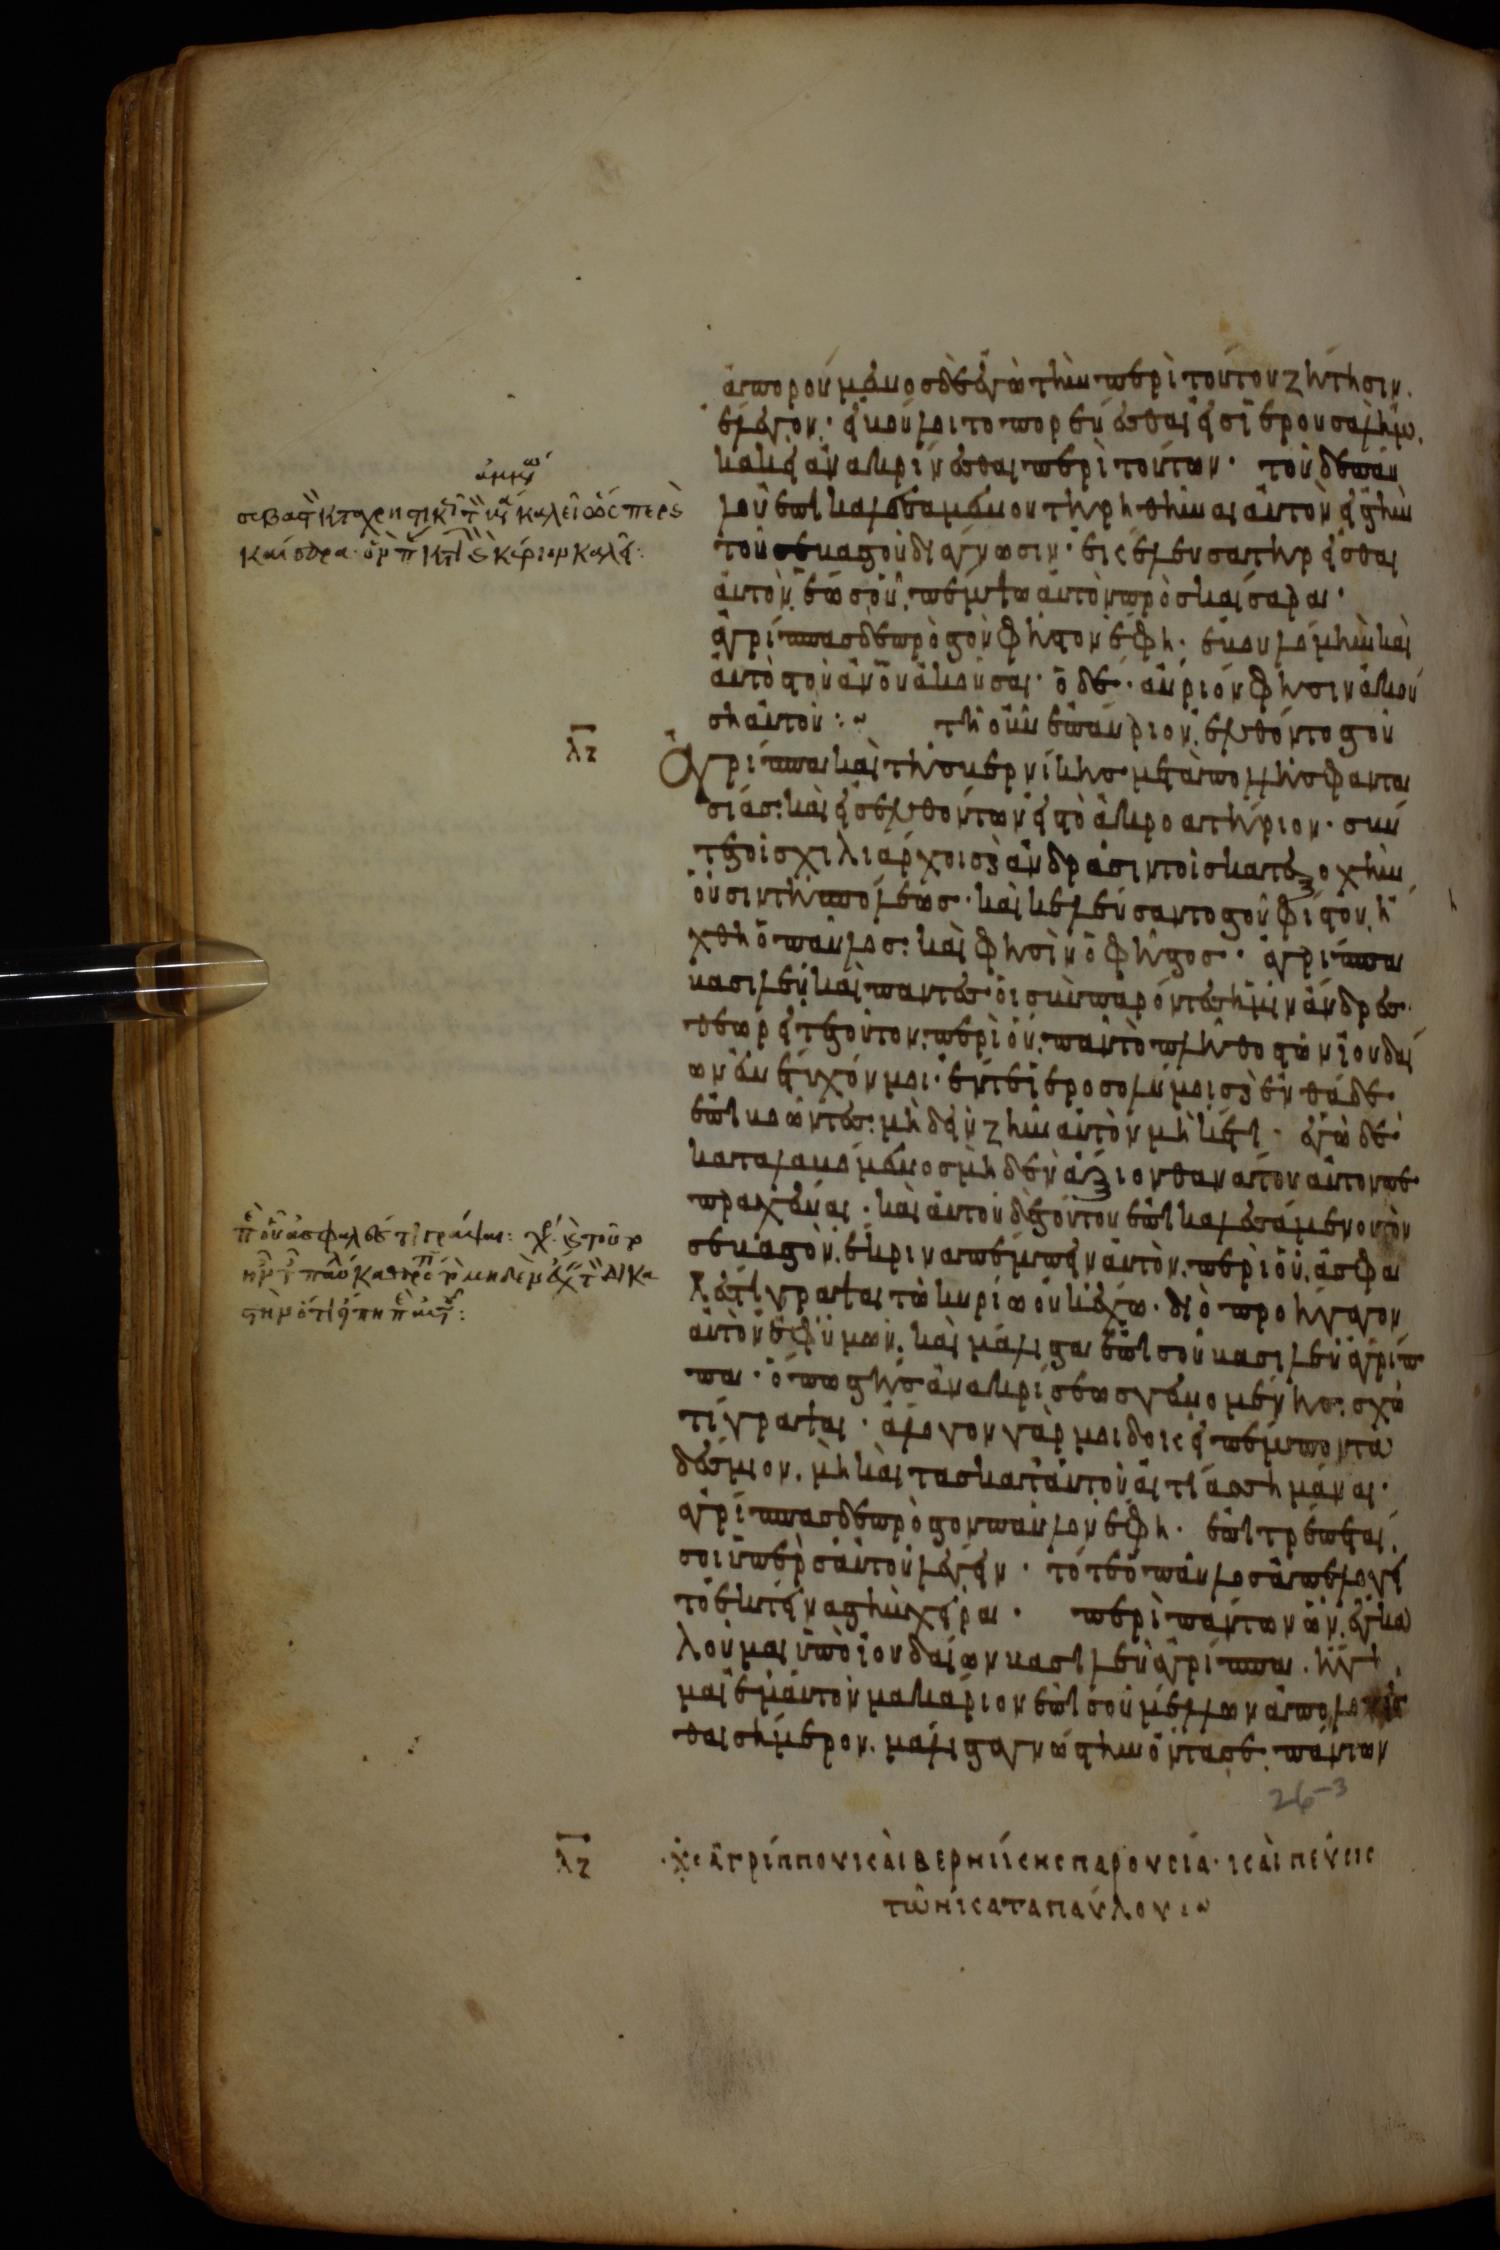 ἀπορούμενος δὲ ἐγὼ τὴν περὶ τούτου ζήτησιν,
ἔλεγον· εἰ βούλοιτο πορεύεσθαι εἰς ἱερουσαλήμ,
κἀκεῖ ἀνακρίνεσθαι περὶ τούτων· τοῦ δὲ παύ
λου ἐπικαλεσαμένου τηρηθῆναι αὐτὸν εἰς τὴν
τοῦ σεβαστοῦ διάγνωσιν· ἐκέλευσα τηρεῖσθαι
αὐτὸν, ἕως οὗ, πέμψω αὐτὸν πρὸς καίσαρα·
ἀγρίππας δὲ πρὸς τὸν φῆστον ἔφη· ἐβουλόμην καὶ
αὐτὸς τοῦ ἀνοῦ ἀκοῦσαι· ὁ δέ· αὔριον φησὶν ἀκού
ση αὐτοῦ :~ τῆ οὖν ἐπαύριον, ἐλθόντος τοῦ
λζ
Ἀγρίππα καὶ τῆς βερνίκης μετὰ πολλῆς φαντα
σίας· καὶ εἰσελθόντων εἰς τὸ ἀκροατήριον· σύν
τε τοῖς χιλιάρχοις καὶ ἀνδράσιν τοῖς κατ' ἐξοχὴν
οὖσιν τῆς πόλεως· καὶ κελεύσαντος τοῦ φίστου, ἤ
χθη ὁ παῦλος· καὶ φησὶν ὁ φῆστος· ἀγρίππα
βασιλεῦ καὶ πάντες οἱ συμπαρόντες ἡμῖν ἄνδρες·
θεωρεῖτε τοῦτον, περὶ οὗ, πᾶν τὸ πλῆθος τῶν ἰουδαί
ων ἐνέτυχόν μοι· ἔν τε ἱεροσολύμοις καὶ ἐνθάδε
ἐπιβοῶντες· μὴ δεῖν ζῆν αὐτὸν μὴκέτι· ἐγὼ δὲ
καταλαβόμενος μηδὲν ἄξιον θανάτου αὐτὸν πε
πραχέναι· καὶ αὐτοῦ δὲ τούτου ἐπικαλεσάμενου τὸν
σεβαστὸν, ἔκρινα πέμπειν αὐτὸν, περὶ οὗ, ἀσφα
λές τί γράψαι τῶ κυρίω οὐκ ἔχω· διὸ προήγαγον
αὐτὸν ἐφ' ὑμῶν, καὶ μάλιστα ἐπὶ σοῦ βασιλεῦ ἀγρίπ
πα· ὅπως τῆς ἀνακρίσεως γενομένης, σχῶ
τί γράψαι· ἄλογον γάρ μοι δοκεῖ πέμποντα
δέσμιον, μὴ καὶ τὰς κατ' αὐτοῦ αἰτίας σημάναι·
ἀγρίππας δὲ πρὸς τὸν παῦλον ἔφη· ἐπιτρέπεταί
σοι ὑπὲρ σαυτοῦ λέγειν· τότε ὁ παῦλος ἀπελογεῖ
το ἐκτείνας τὴν χεῖρα· περὶ πάντων ὧν, ἐγκα
λοῦμαι ὑπὸ ἰουδαίων βασιλεῦ ἀγρίππα· ἥγη
μαι ἐμαυτὸν μακάριον ἐπὶ σοῦ μέλλων ἀπολογεῖσ
θαι σήμερον, μάλιστα γνώστην ὄντα σε, πάντων
26-3
λζ ἀγρίππου καὶ βερνίκης παρουσία· καὶ πεύσις
τῶν κατὰ παύλου :~